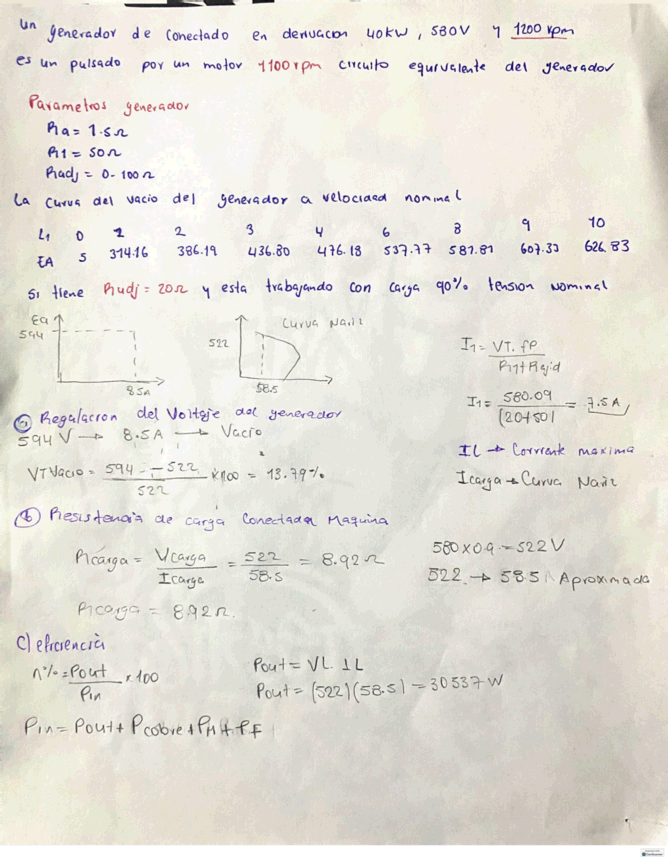 Un generador de conectado en derivacion 40KW, 580V y 1200 rpm
es un pulsado por un motor 1100rpm circuito equivalente del generador
Parametros generador
Ra = 1.5Ω
R1 = 50Ω
Radj = 0-100Ω
La curva del vacio del generador a velocidad nominal
0 1 2 3 4 6 8 9 10
EA 5 314.16 386.19 436.80 476.18 537.77 587.81 607.33 626.83
Si tiene Radj = 20Ω y esta trabajando con carga 90% tension nominal
Ea
594
8.5A
Curva Nariz
522
58.5
I1 = VT. fp
R1+Rajd
I1 = 580.09 = 7.5A
(20+50)
a) Regulacion del Voltaje del generador
594V → 8.5A → Vacio
VTVacio = 594 - 522 x100 = 13.79%
522
IL → Corriente maxima
Icarga → Curva Nariz
b) Resistencia de carga Conectada Maquina
Rcarga = Vcarga = 522 = 8.92Ω
Icarga 58.5
Rcarga = 8.92Ω.
580x0.9 = 522V
522 → 58.5A Aproximada
C) eficiencia
n% = Pout x100
Pin
Pout = VL. IL
Pout = (522)(58.5) = 30537W
Pin = Pout + Pcobre + PM + PF